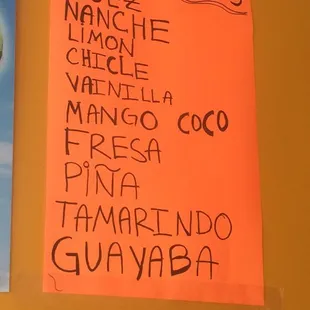 NANCHE
LIMON
CHICLE
VAINILLA
MANGO COCO
FRESA
PIÑA
TAMARINDO
GUAYABA